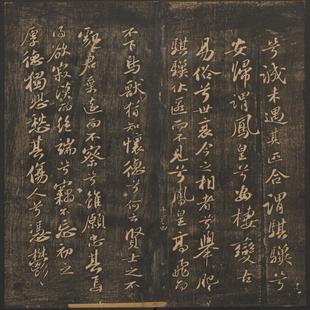 兮誠未遇其匹合謂騏驥兮
安歸謂鳳皇兮安棲變古
易俗兮世衰今之相者兮舉肥
騏驥伏匿而不見兮鳳皇高飛而
不下鳥獸猶知懷德兮何云賢士之不
處君棄遠而不察兮雖願忠其焉
得欲寂漠而絕端兮竊不敢忘初之
厚德獨悲愁其傷人兮馮鬱